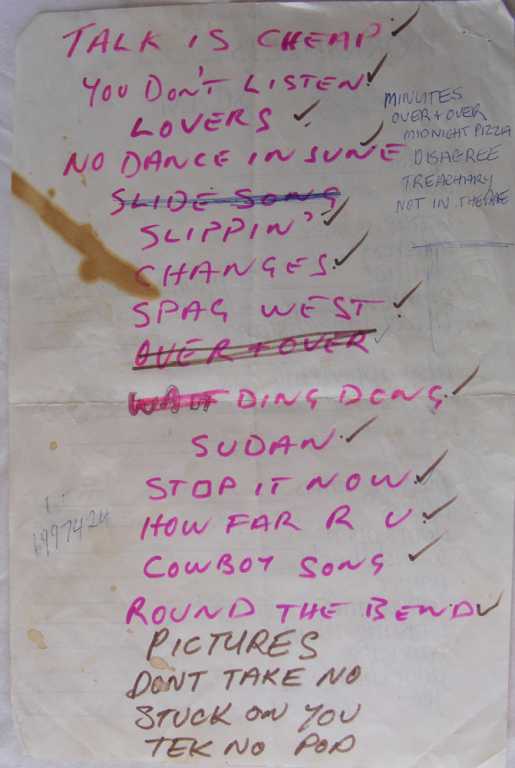 TALK IS CHEAP
YOU DON'T LISTEN
LOVERS
NO DANCE IN JUNE
SLIDE SONG
SLIPPIN'
CHANGES
SPAG WEST
OVER + OVER
DING DONG
SUDAN
STOP IT NOW
HOW FAR R U
COWBOY SONG
ROUND THE BEND
PICTURES
DONT TAKE NO
STUCK ON YOU
TEK NO POD
MINUTES
OVER + OVER
MIDNIGHT PIZZA
DISAGREE
TREACHARY
NOT IN THE
6997424